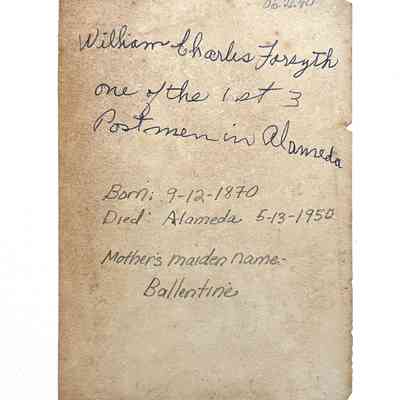 William Charles Forsyth
one of the 1st 3
Postmen in Alameda
Born: 9-12-1870
Died: Alameda 5-13-1950
Mother's maiden name-
Ballentine